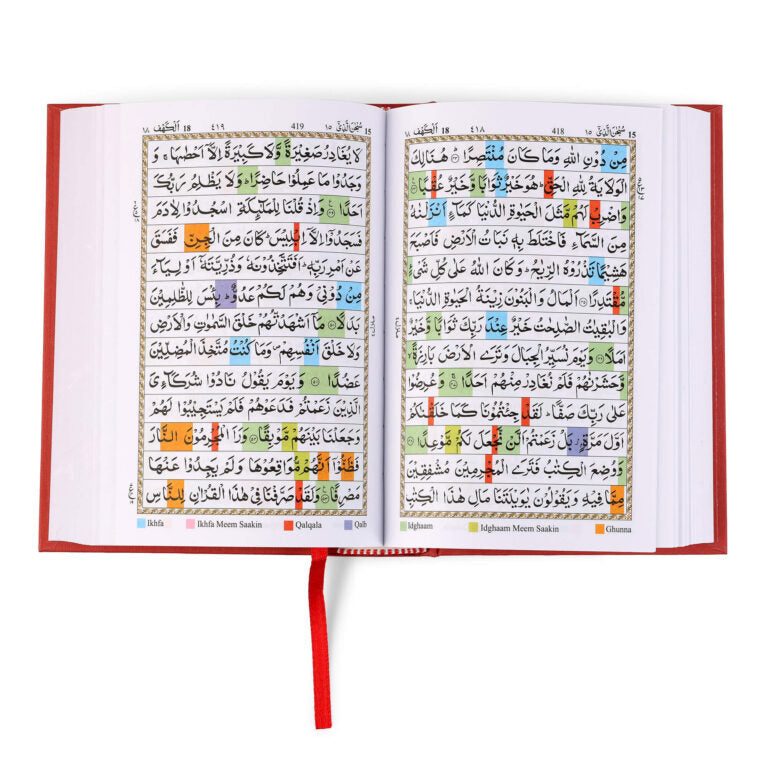 15 سُبْحٰنَ الَّذِيْٓ ١٥ 418 ٤١٨ 18 اَلْكَهْف ١٨
مِنْ دُوْنِ اللّٰهِ وَمَا كَانَ مُنْتَصِرًا ۝٤٣ هُنَالِكَ
الْوَلَايَةُ لِلّٰهِ الْحَقِّ ؕ هُوَ خَيْرٌ ثَوَابًا وَّخَيْرٌ عُقْبًا ۝٤٤
وَاضْرِبْ لَهُمْ مَّثَلَ الْحَيٰوةِ الدُّنْيَا كَمَآءٍ اَنْزَلْنٰهُ
مِنَ السَّمَآءِ فَاخْتَلَطَ بِهٖ نَبَاتُ الْاَرْضِ فَاَصْبَحَ
هَشِيْمًا تَذْرُوْهُ الرِّيٰحُ ؕ وَكَانَ اللّٰهُ عَلٰى كُلِّ شَيْءٍ
مُّقْتَدِرًا ۝٤٥ اَلْمَالُ وَالْبَنُوْنَ زِيْنَةُ الْحَيٰوةِ الدُّنْيَا ۚ
وَالْبٰقِيٰتُ الصّٰلِحٰتُ خَيْرٌ عِنْدَ رَبِّكَ ثَوَابًا وَّخَيْرٌ
اَمَلًا ۝٤٦ وَيَوْمَ نُسَيِّرُ الْجِبَالَ وَتَرَى الْاَرْضَ بَارِزَةً ۙ
وَّحَشَرْنٰهُمْ فَلَمْ نُغَادِرْ مِنْهُمْ اَحَدًا ۝٤٧ وَعُرِضُوْا
عَلٰى رَبِّكَ صَفًّا ؕ لَقَدْ جِئْتُمُوْنَا كَمَا خَلَقْنٰكُمْ
اَوَّلَ مَرَّةٍ ۢ بَلْ زَعَمْتُمْ اَلَّنْ نَّجْعَلَ لَكُمْ مَّوْعِدًا ۝٤٨
وَوُضِعَ الْكِتٰبُ فَتَرَى الْمُجْرِمِيْنَ مُشْفِقِيْنَ
مِمَّا فِيْهِ وَيَقُوْلُوْنَ يٰوَيْلَتَنَا مَالِ هٰذَا الْكِتٰبِ
Idghaam Idghaam Meem Saakin Ghunna
15 سُبْحٰنَ الَّذِيْٓ ١٥ 419 ٤١٩ 18 اَلْكَهْف ١٨
لَا يُغَادِرُ صَغِيْرَةً وَّلَا كَبِيْرَةً اِلَّآ اَحْصٰىهَا ۚ وَ
وَجَدُوْا مَا عَمِلُوْا حَاضِرًا ؕ وَلَا يَظْلِمُ رَبُّكَ
اَحَدًا ۝٤٩ وَاِذْ قُلْنَا لِلْمَلٰٓئِكَةِ اسْجُدُوْا لِاٰدَمَ
فَسَجَدُوْٓا اِلَّآ اِبْلِيْسَ ؕ كَانَ مِنَ الْجِنِّ فَفَسَقَ
عَنْ اَمْرِ رَبِّهٖ ؕ اَفَتَتَّخِذُوْنَهٗ وَذُرِّيَّتَهٗٓ اَوْلِيَآءَ
مِنْ دُوْنِيْ وَهُمْ لَكُمْ عَدُوٌّ ؕ بِئْسَ لِلظّٰلِمِيْنَ
بَدَلًا ۝٥٠ مَآ اَشْهَدْتُّهُمْ خَلْقَ السَّمٰوٰتِ وَالْاَرْضِ
وَلَا خَلْقَ اَنْفُسِهِمْ ۪ وَمَا كُنْتُ مُتَّخِذَ الْمُضِلِّيْنَ
عَضُدًا ۝٥١ وَيَوْمَ يَقُوْلُ نَادُوْا شُرَكَآءِيَ
الَّذِيْنَ زَعَمْتُمْ فَدَعَوْهُمْ فَلَمْ يَسْتَجِيْبُوْا لَهُمْ
وَجَعَلْنَا بَيْنَهُمْ مَّوْبِقًا ۝٥٢ وَرَاَ الْمُجْرِمُوْنَ النَّارَ
فَظَنُّوْٓا اَنَّهُمْ مُّوَاقِعُوْهَا وَلَمْ يَجِدُوْا عَنْهَا
مَصْرِفًا ۝٥٣ وَلَقَدْ صَرَّفْنَا فِيْ هٰذَا الْقُرْاٰنِ لِلنَّاسِ
Ikhfa Ikhfa Meem Saakin Qalqala Qalb